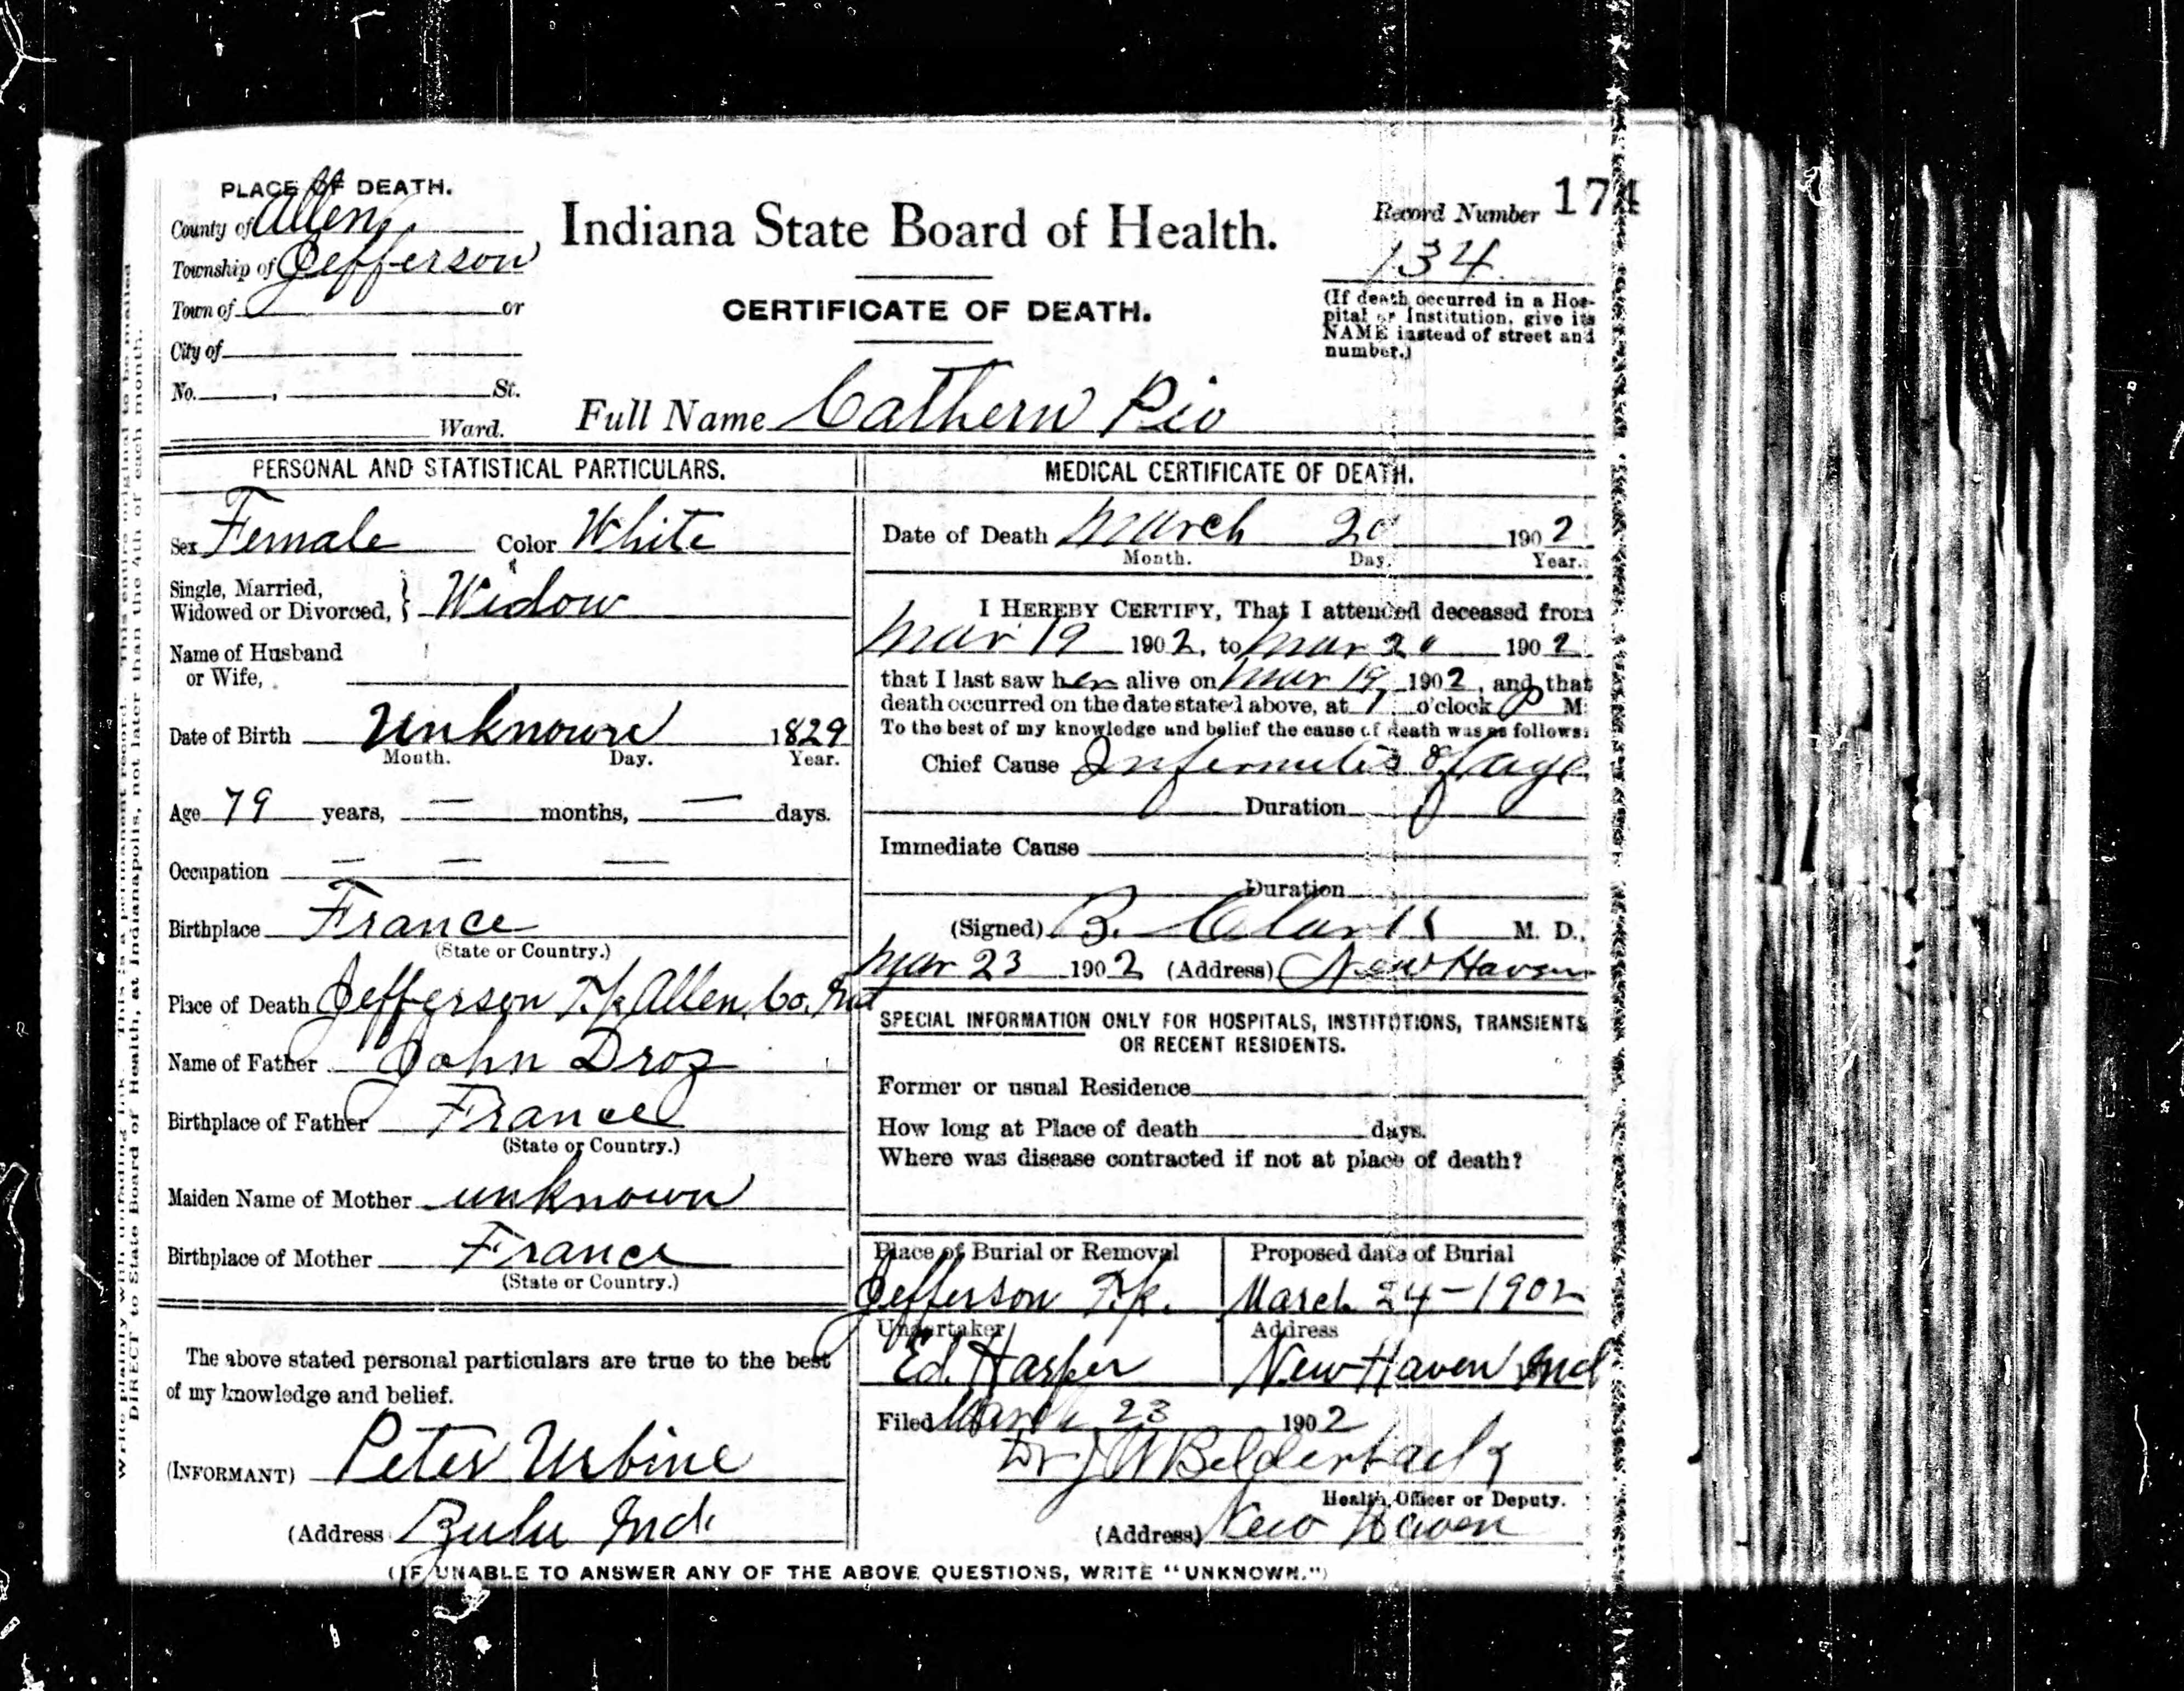 PLACE OF DEATH.
County of Allen
Township of Jefferson,
Town of or
City of
No. , St.
Ward.
Indiana State Board of Health.
CERTIFICATE OF DEATH.
Record Number 174
134
(If death occurred in a Hos-
pital or Institution, give its
NAME instead of street and
number.)
Full Name Cathern Pio
PERSONAL AND STATISTICAL PARTICULARS.
Sex Female Color White
Single, Married,
Widowed or Divorced, } Widow
Name of Husband
or Wife,
Date of Birth Unknown 1829
Month. Day. Year.
Age 79 years, — months, — days.
Occupation — — —
Birthplace France
(State or Country.)
Place of Death Jefferson Tp Allen, Co. Ind
Name of Father John Droz
Birthplace of Father France
(State or Country.)
Maiden Name of Mother unknown
Birthplace of Mother France
(State or Country.)
The above stated personal particulars are true to the best
of my knowledge and belief.
(INFORMANT) Peter Urbine
(Address Zulu Ind.
MEDICAL CERTIFICATE OF DEATH.
Date of Death March 20 1902
Month. Day. Year.
I HEREBY CERTIFY, That I attended deceased from
Mar 19 1902, to Mar 20 1902
that I last saw her alive on Mar 19, 1902, and that
death occurred on the date stated above, at o'clock P M.
To the best of my knowledge and belief the cause of death was as follows:
Chief Cause Infermities of age
Duration
Immediate Cause
Duration
(Signed) B. Clark M. D.,
Mar 23 1902 (Address) New Haven
SPECIAL INFORMATION ONLY FOR HOSPITALS, INSTITUTIONS, TRANSIENTS
OR RECENT RESIDENTS.
Former or usual Residence
How long at Place of death days.
Where was disease contracted if not at place of death?
Place of Burial or Removal Proposed date of Burial
Jefferson Tp. March 24-1902
Undertaker Address
Ed. Harper New Haven Ind
Filed March 23 1902
Dr J W Bilderback
Health Officer or Deputy.
(Address) New Haven
(IF UNABLE TO ANSWER ANY OF THE ABOVE QUESTIONS, WRITE "UNKNOWN.")
Write plainly with unfading ink. This is a permanent record. This entire original to be mailed
DIRECT to State Board of Health, at Indianapolis, not later than the 4th of each month.